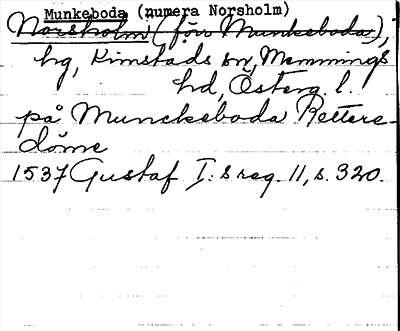 Munkeboda (numera Norsholm)
Norsholm (förr Munkeboda),
hg, Kimstads sn, Memmings
hd, Österg. l.
på Munckeboda Rettere-
döme
1537 Gustaf I:s reg. 11, s. 320.